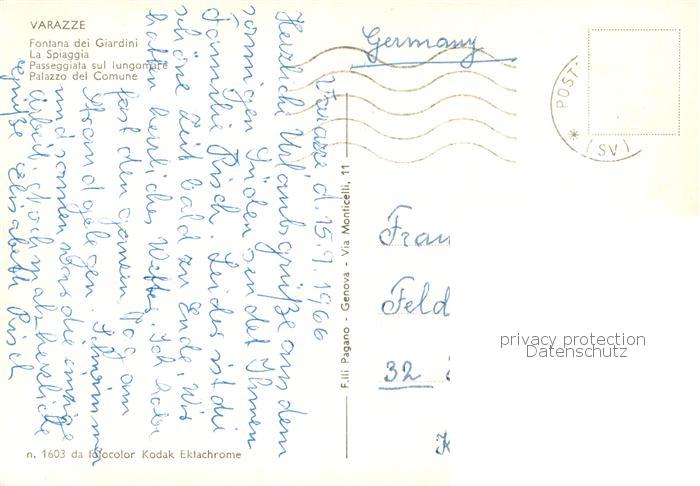 VARAZZE
Fontana dei Giardini
La Spiaggia
Passeggiata sul lungomare
Palazzo del Comune
Varazze d. 15.9.1966
Herzliche Urlaubsgrüße aus dem
sonnigen Süden sendet Ihnen
Familie Risch. Leider ist die
schöne Zeit bald zu Ende. Wir
haben herrliches Wetter. Ich habe
fast den ganzen Tag am
Strand gelegen. Schwimmen
und sonnen war die einzige
Arbeit. Nochmals herzliche
Grüße Elisabeth Risch
n. 1603 da fotocolor Kodak Ektachrome
F.lli Pagano - Genova - Via Monticelli, 11
Germany
POST
(SV)
Frau
Feld
32
K
privacy protection
Datenschutz